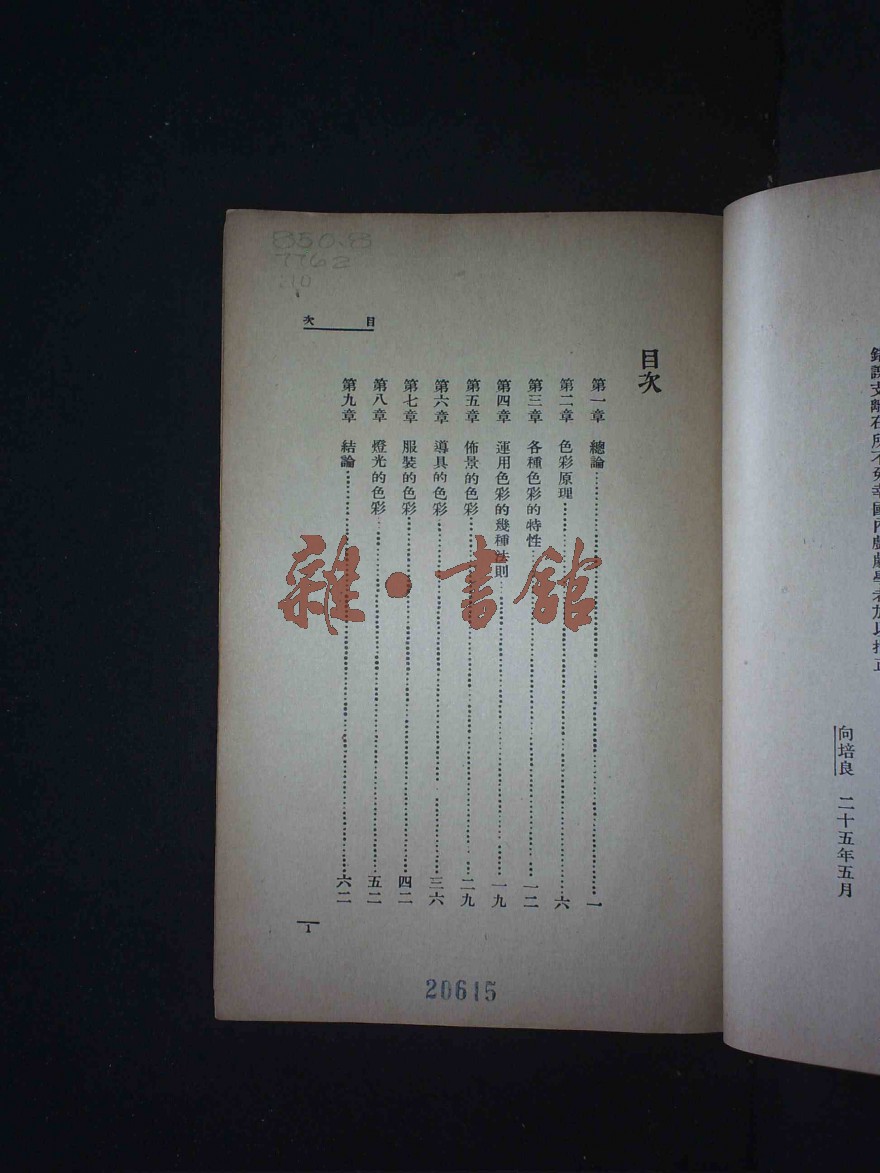 錯誤支離在所不免幸國內戲劇學者加以指正
向培良 二十五年五月
目次
第一章 總論 一
第二章 色彩原理 六
第三章 各種色彩的特性 一二
第四章 運用色彩的幾種法則 一九
第五章 佈景的色彩 二九
第六章 導具的色彩 三六
第七章 服裝的色彩 四二
第八章 燈光的色彩 五二
第九章 結論 六二
目次
1
850.8
7762
:10
20615
雜·書館